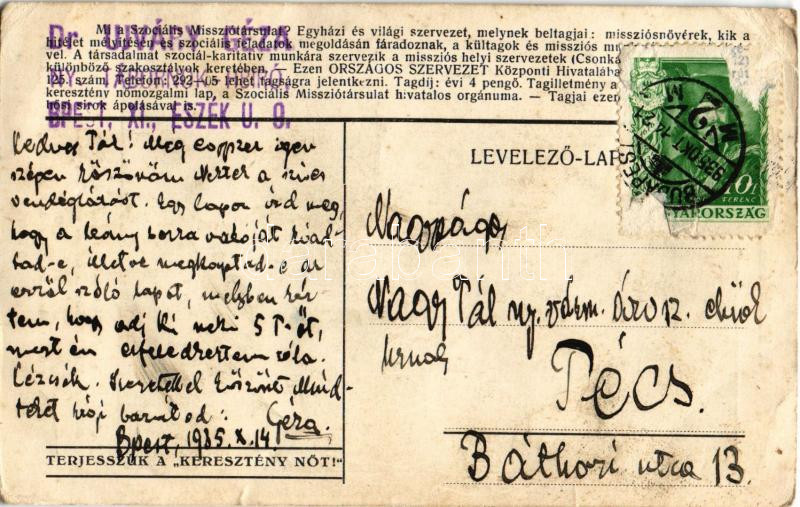 Dr. UJVÁRY GÉZA
BPEST, XI., ESZÉK U. 9.
Mi a Szociális Missziótársulat? Egyházi és világi szervezet, melynek beltagjai: missziósnővérek, kik a
hitélet mélyítésén és szociális feladatok megoldásán fáradoznak, a kültagok és missziós mu
vel. A társadalmat szociál-karitatív munkára szervezik a missziós helyi szervezetek (Csonka
különböző szakosztályok keretében. – Ezen ORSZÁGOS SZERVEZET Központi Hivatalába
125. szám! Telefon: 292—05 lehet tagságra jelentkezni. Tagdíj: évi 4 pengő. Tagilletmény a
keresztény nőmozgalmi lap, a Szociális Missziótársulat hivatalos orgánuma. — Tagjai ezen
hősi sírok ápolásával is.
LEVELEZŐ-LAP
BUDAPEST
935 OKT 14
10f
FERENC
MAGYARORSZÁG
Kedves Pál! Még egyszer igen
szépen köszönöm Nektek a szíves
vendéglátást. Egy lapon írd meg,
hogy a leány borra valóját kiad-
tad-e, illetve megkaptad-e az
erről szóló lapot, melyben kér-
tem, hogy adj ki neki 5 P-őt,
mert én elfeledkeztem róla.
Kézcsók. Szeretettel köszönt Mind-
teket régi barátod: Géza.
Bpest, 1935. X. 14.
TERJESSZÜK A „KERESZTÉNY NŐT!"
Nagyságos
Nagy Pál ny. orsz.
urnak
Pécs.
Báthori utca 13.